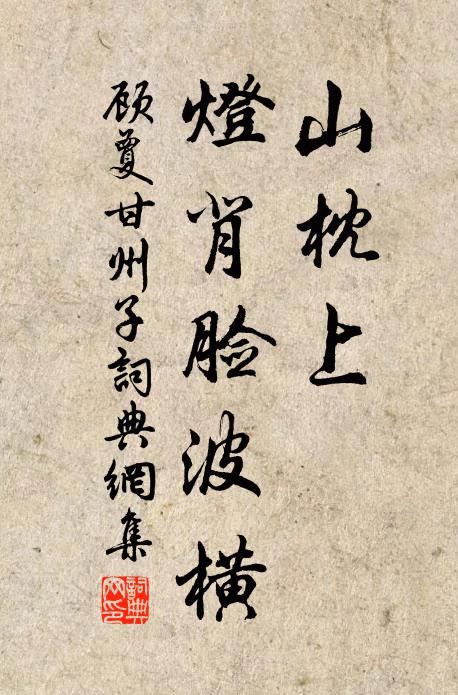 山枕上
燈背脸波横
顾夐甘州子詞典網集
詞典
文印